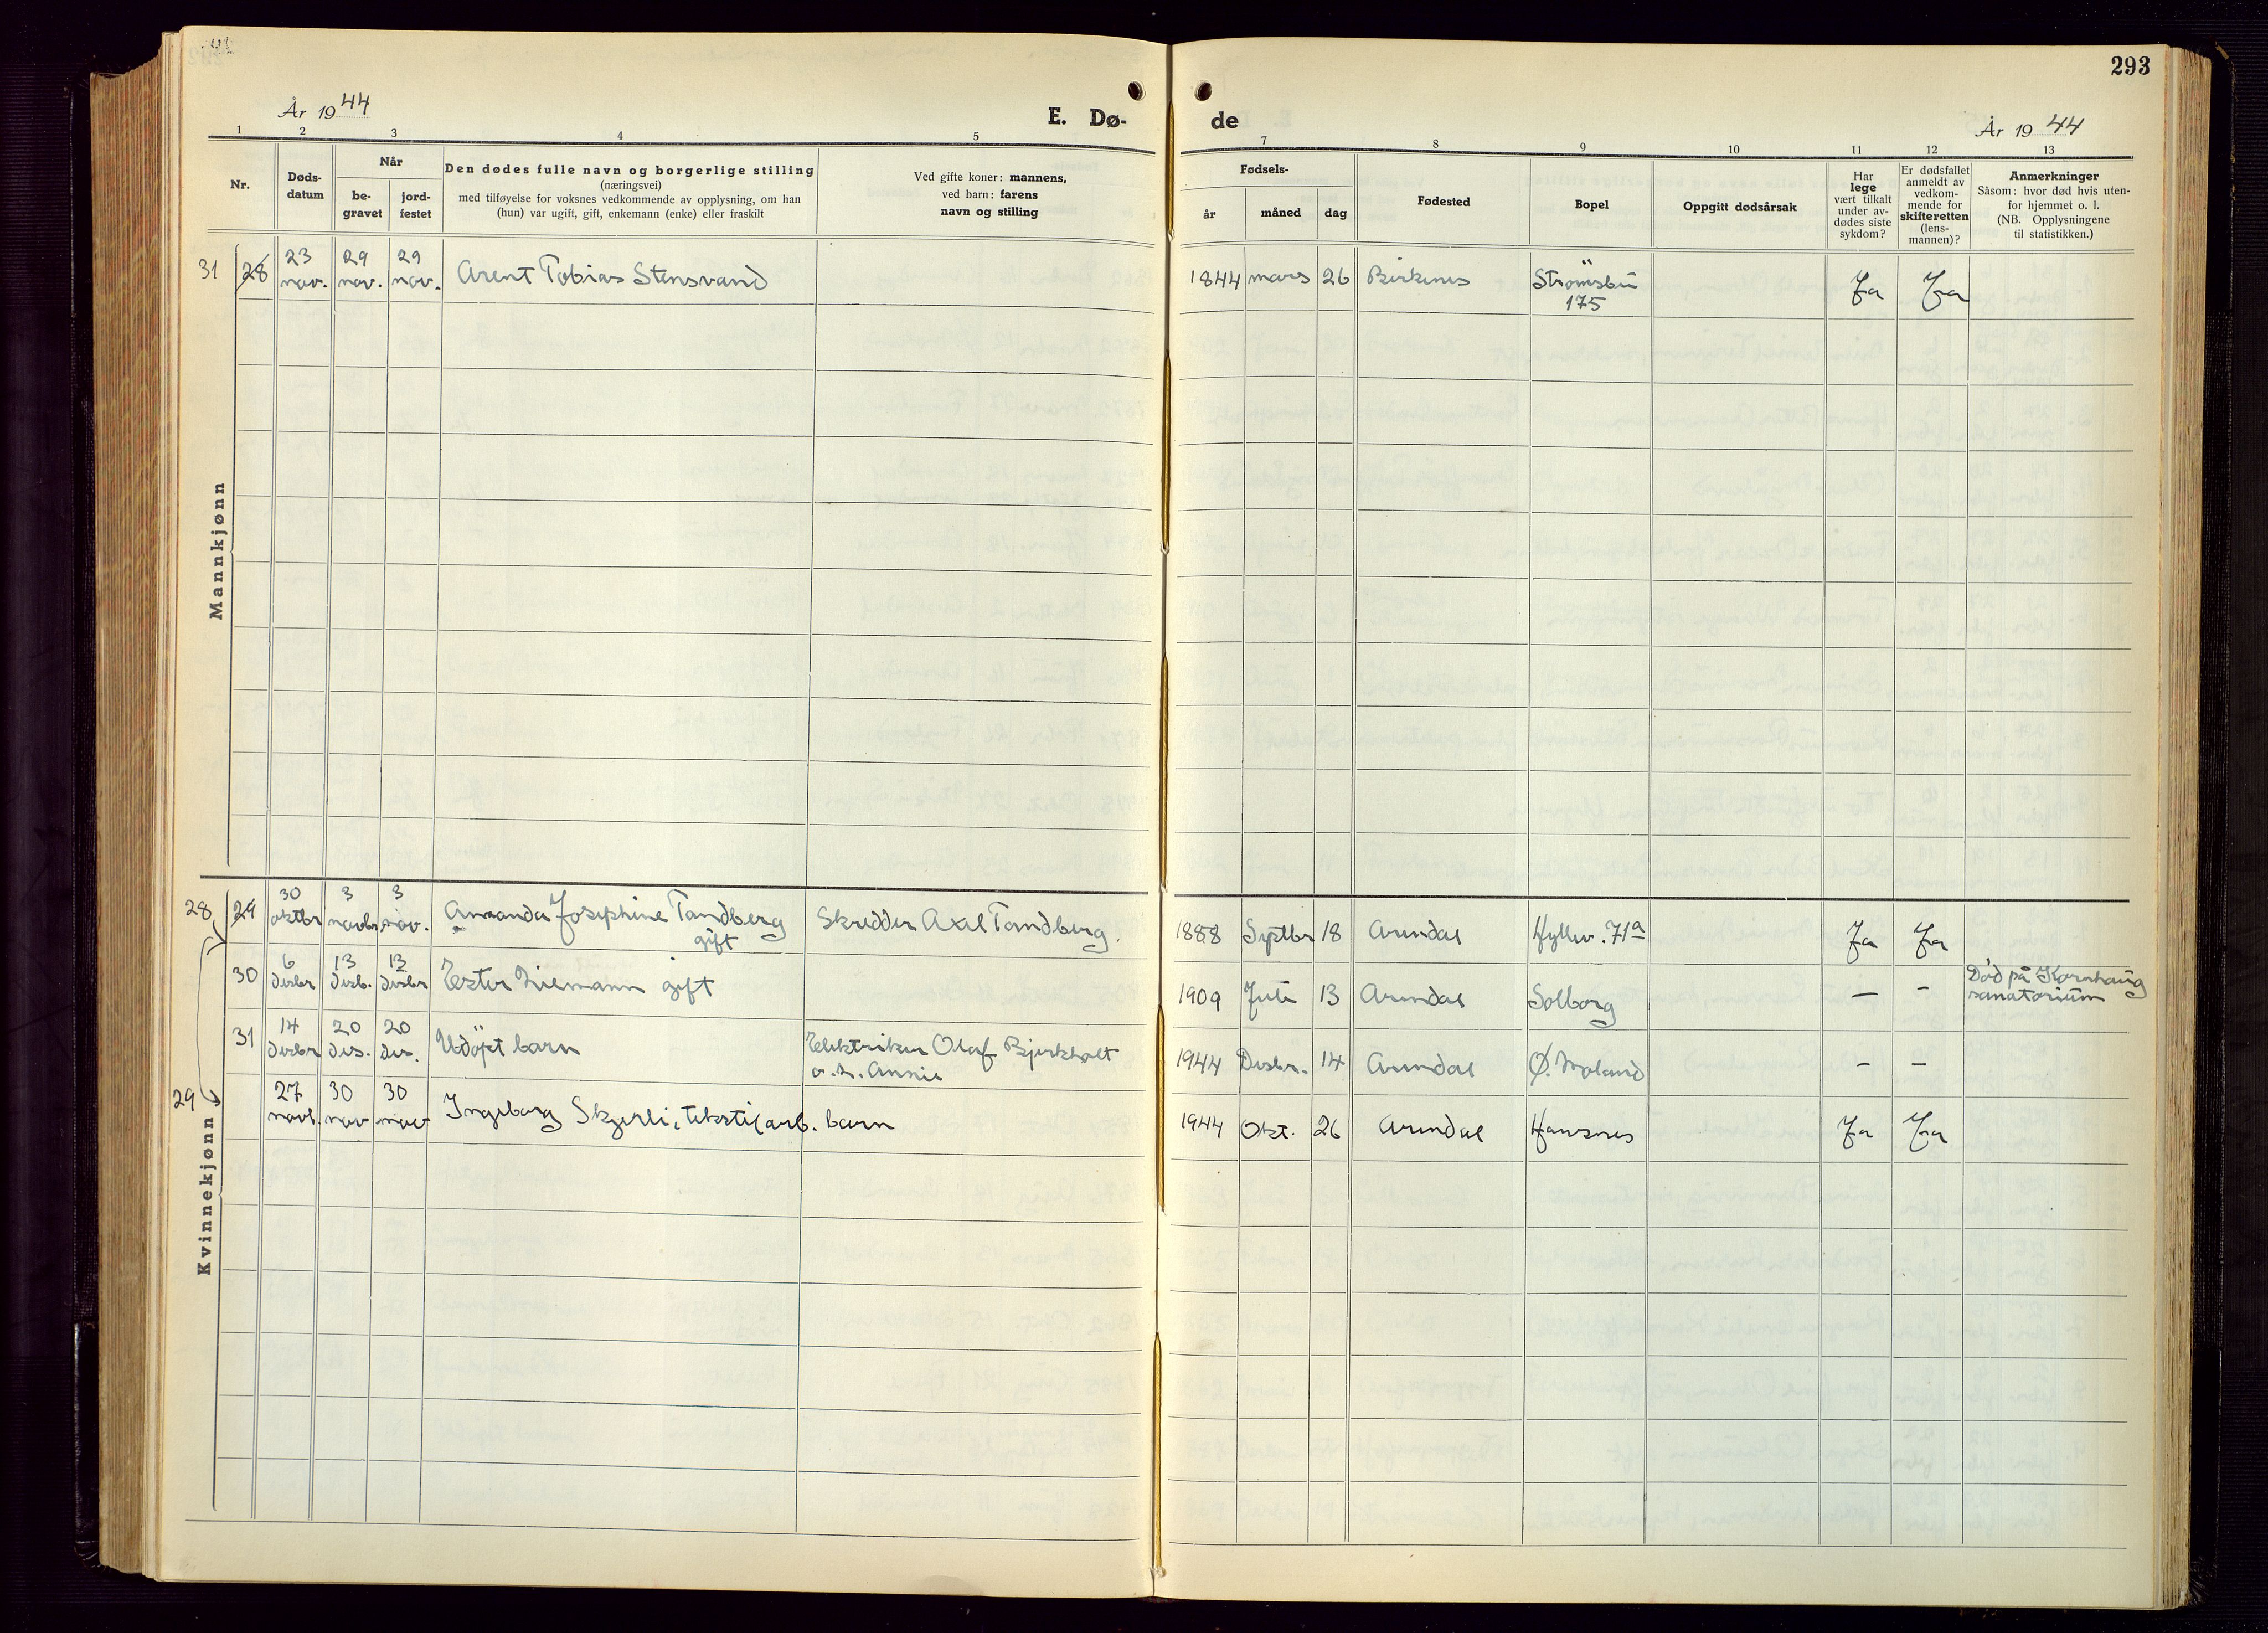 293
År 1944
E. Dø-
de
År 1944
1 2 3 4 5
7 8 9 10 11 12 13
Nr.
Døds-
datum
Når
be-
gravet
jord-
festet
Den dødes fulle navn og borgerlige stilling
(næringsvei)
med tilføyelse for voksnes vedkommende av opplysning, om han
(hun) var ugift, gift, enkemann (enke) eller fraskilt
Ved gifte koner: mannens,
ved barn: farens
navn og stilling
Fødsels-
år måned dag
Fødested
Bopel
Oppgitt dødsårsak
Har
lege
vært tilkalt
under av-
dødes siste
sykdom?
Er dødsfallet
anmeldt av
vedkom-
mende for
skifteretten
(lens-
mannen)?
Anmerkninger
Såsom: hvor død hvis uten-
for hjemmet o. l.
(NB. Opplysningene
til statistikken.)
Mannkjønn
31 28 23 nov. 29 nov. 29 nov. Arent Tobias Stensvand 1844 mars 26 Birkenes Strømsbu 175 Ja Ja
Kvinnekjønn
28 29 30 oktbr 3 novbr. 3 nov. Amanda Josephine Tandberg gift Skredder Axel Tandberg. 1888 Septbr 18 Arendal Hyllev. 71a Ja Ja
30 6 desbr 13 desb. 13 desbr Ester Niemann gift 1909 Juli 13 Arendal Solborg — - Død på Kornhaug sanatorium
31 14 desbr 20 des. 20 des. Udøpt barn Elektriker Olaf Bjerkholt o. h. Annie 1944 Desbr. 14 Arendal Ø. Moland - -
29 27 novb. 30 nov 30 nov Ingeborg Skjerli, tekstilarb. barn 1944 Okt. 26 Arendal Havsnes Ja Ja